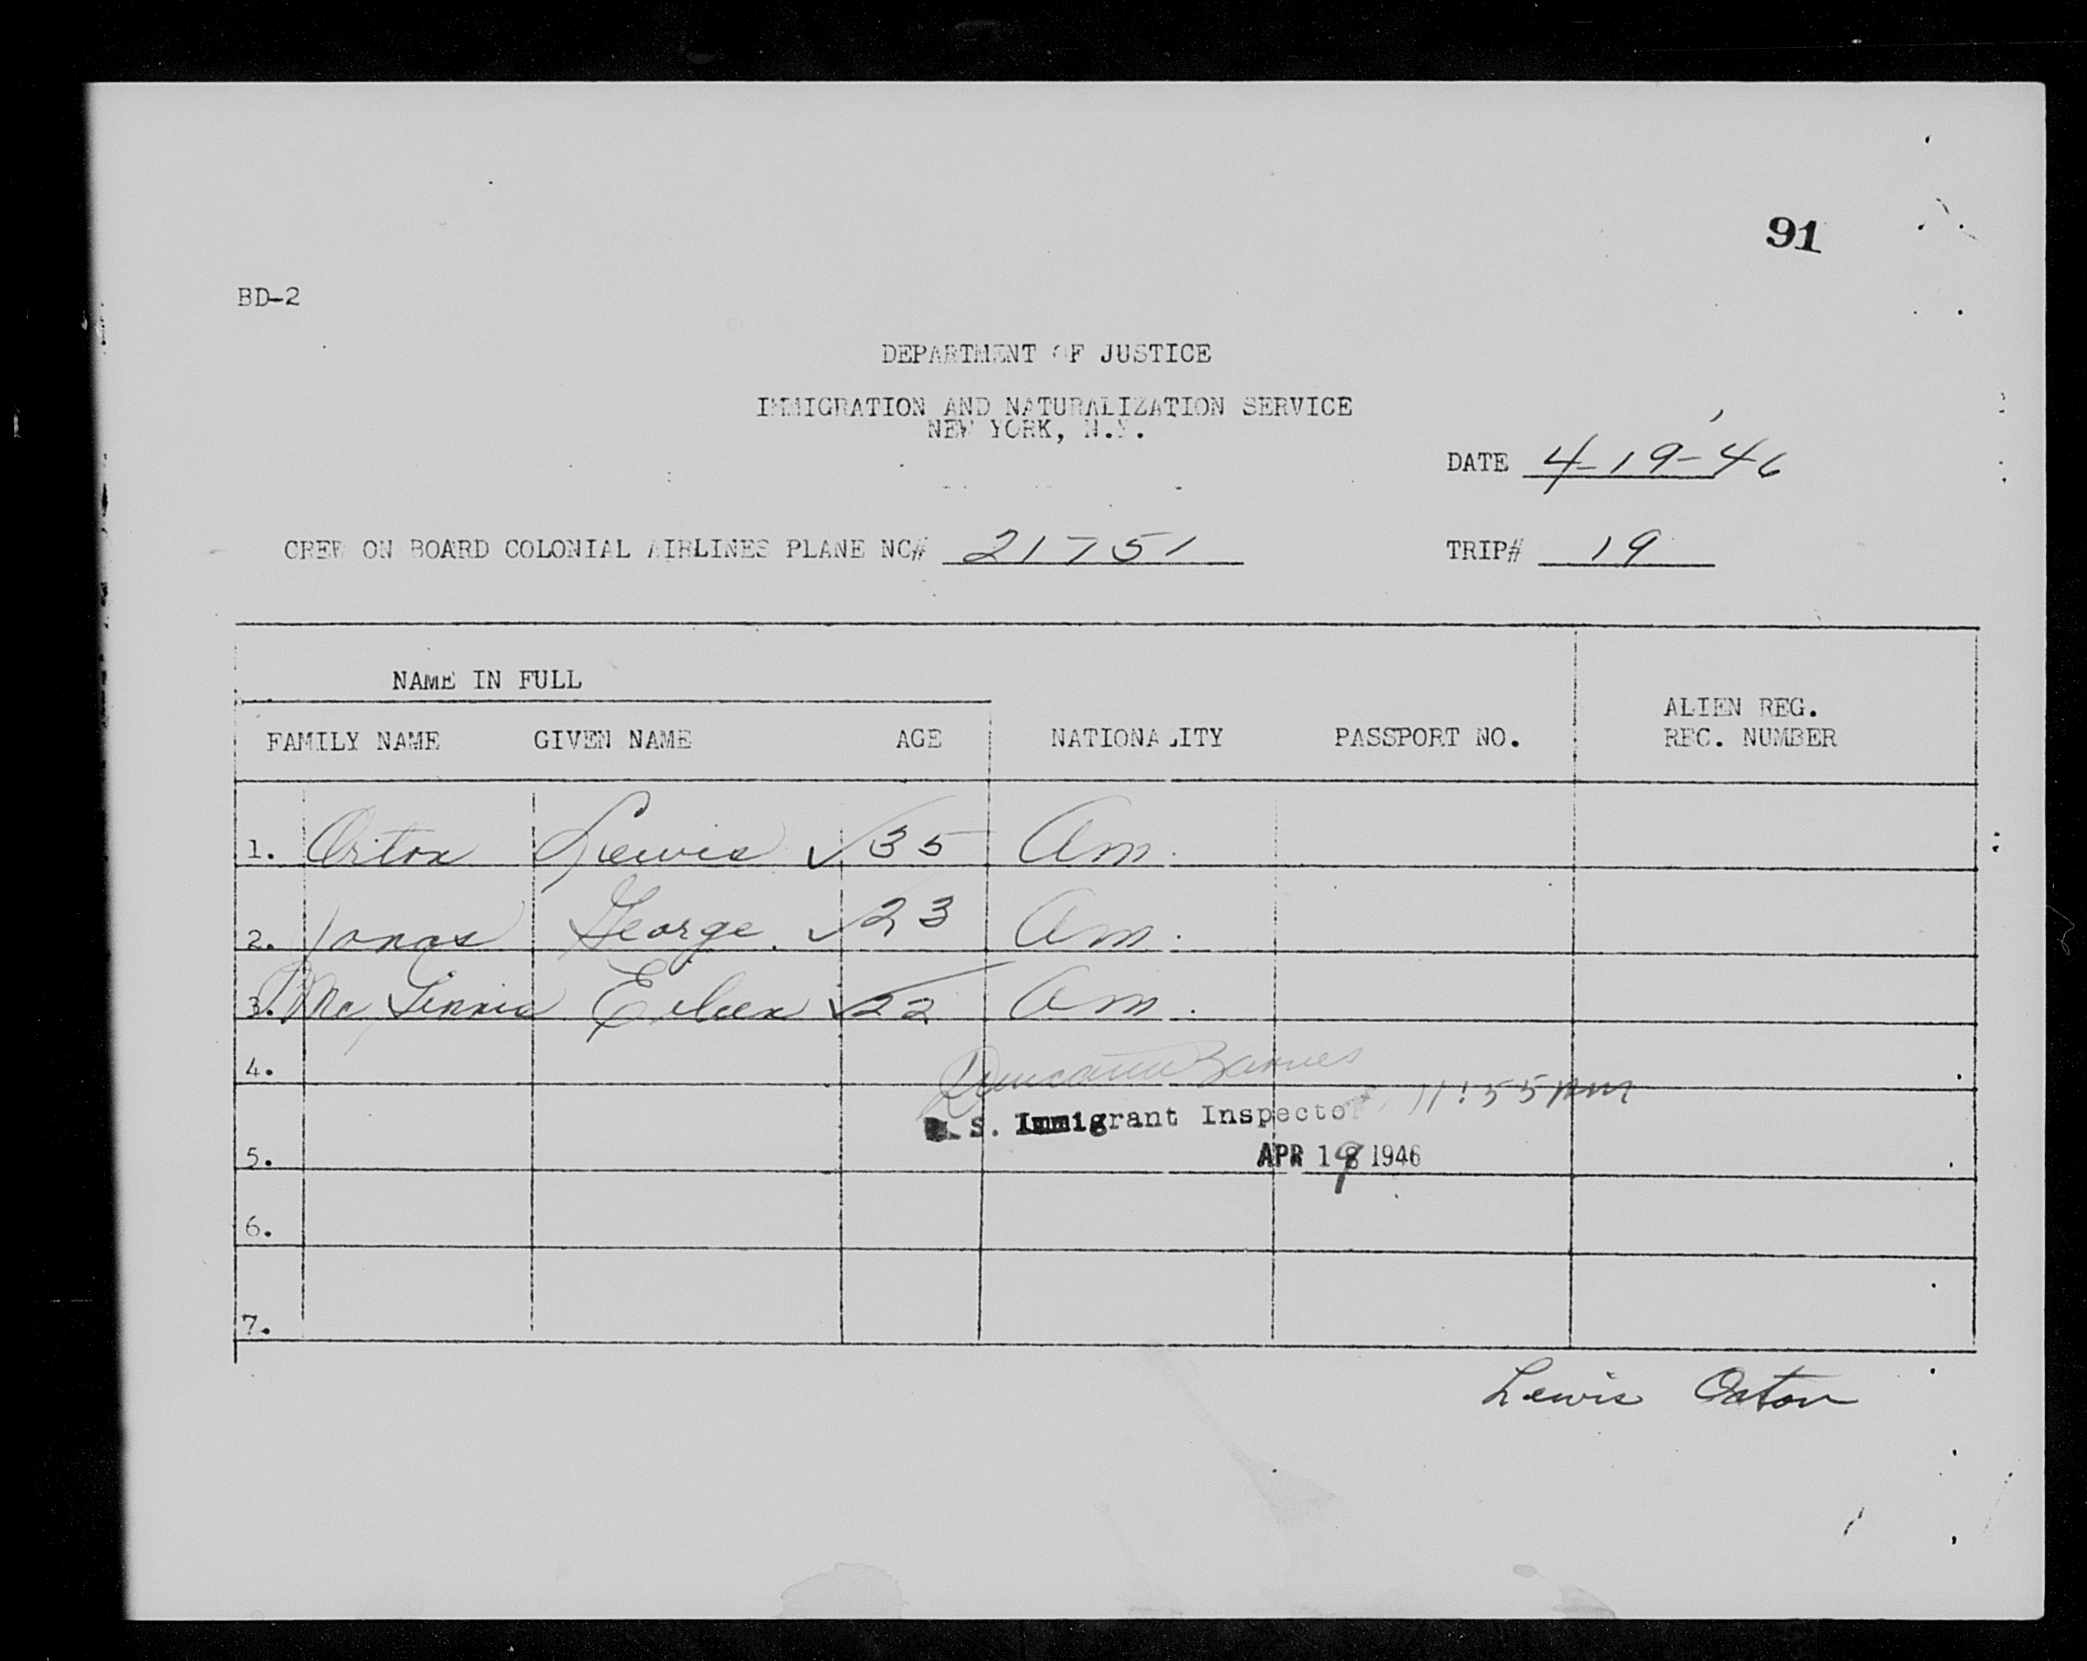 91
BD-2
DEPARTMENT OF JUSTICE
IMMIGRATION AND NATURALIZATION SERVICE
NEW YORK, N.Y.
DATE 4-19-46
CREW ON BOARD COLONIAL AIRLINES PLANE NC# 21751 TRIP# 19
NAME IN FULL
FAMILY NAME GIVEN NAME AGE NATIONALITY PASSPORT NO. ALIEN REG. REC. NUMBER
1. Orton Lewis √ 35 Am.
2. Jonas George √ 23 Am.
3. Eileen √ 22 Am.
4. Barnes
U.S. Immigrant Inspector 11:55 pm
5. APR 19 1946
6.
7.
Lewis Orton